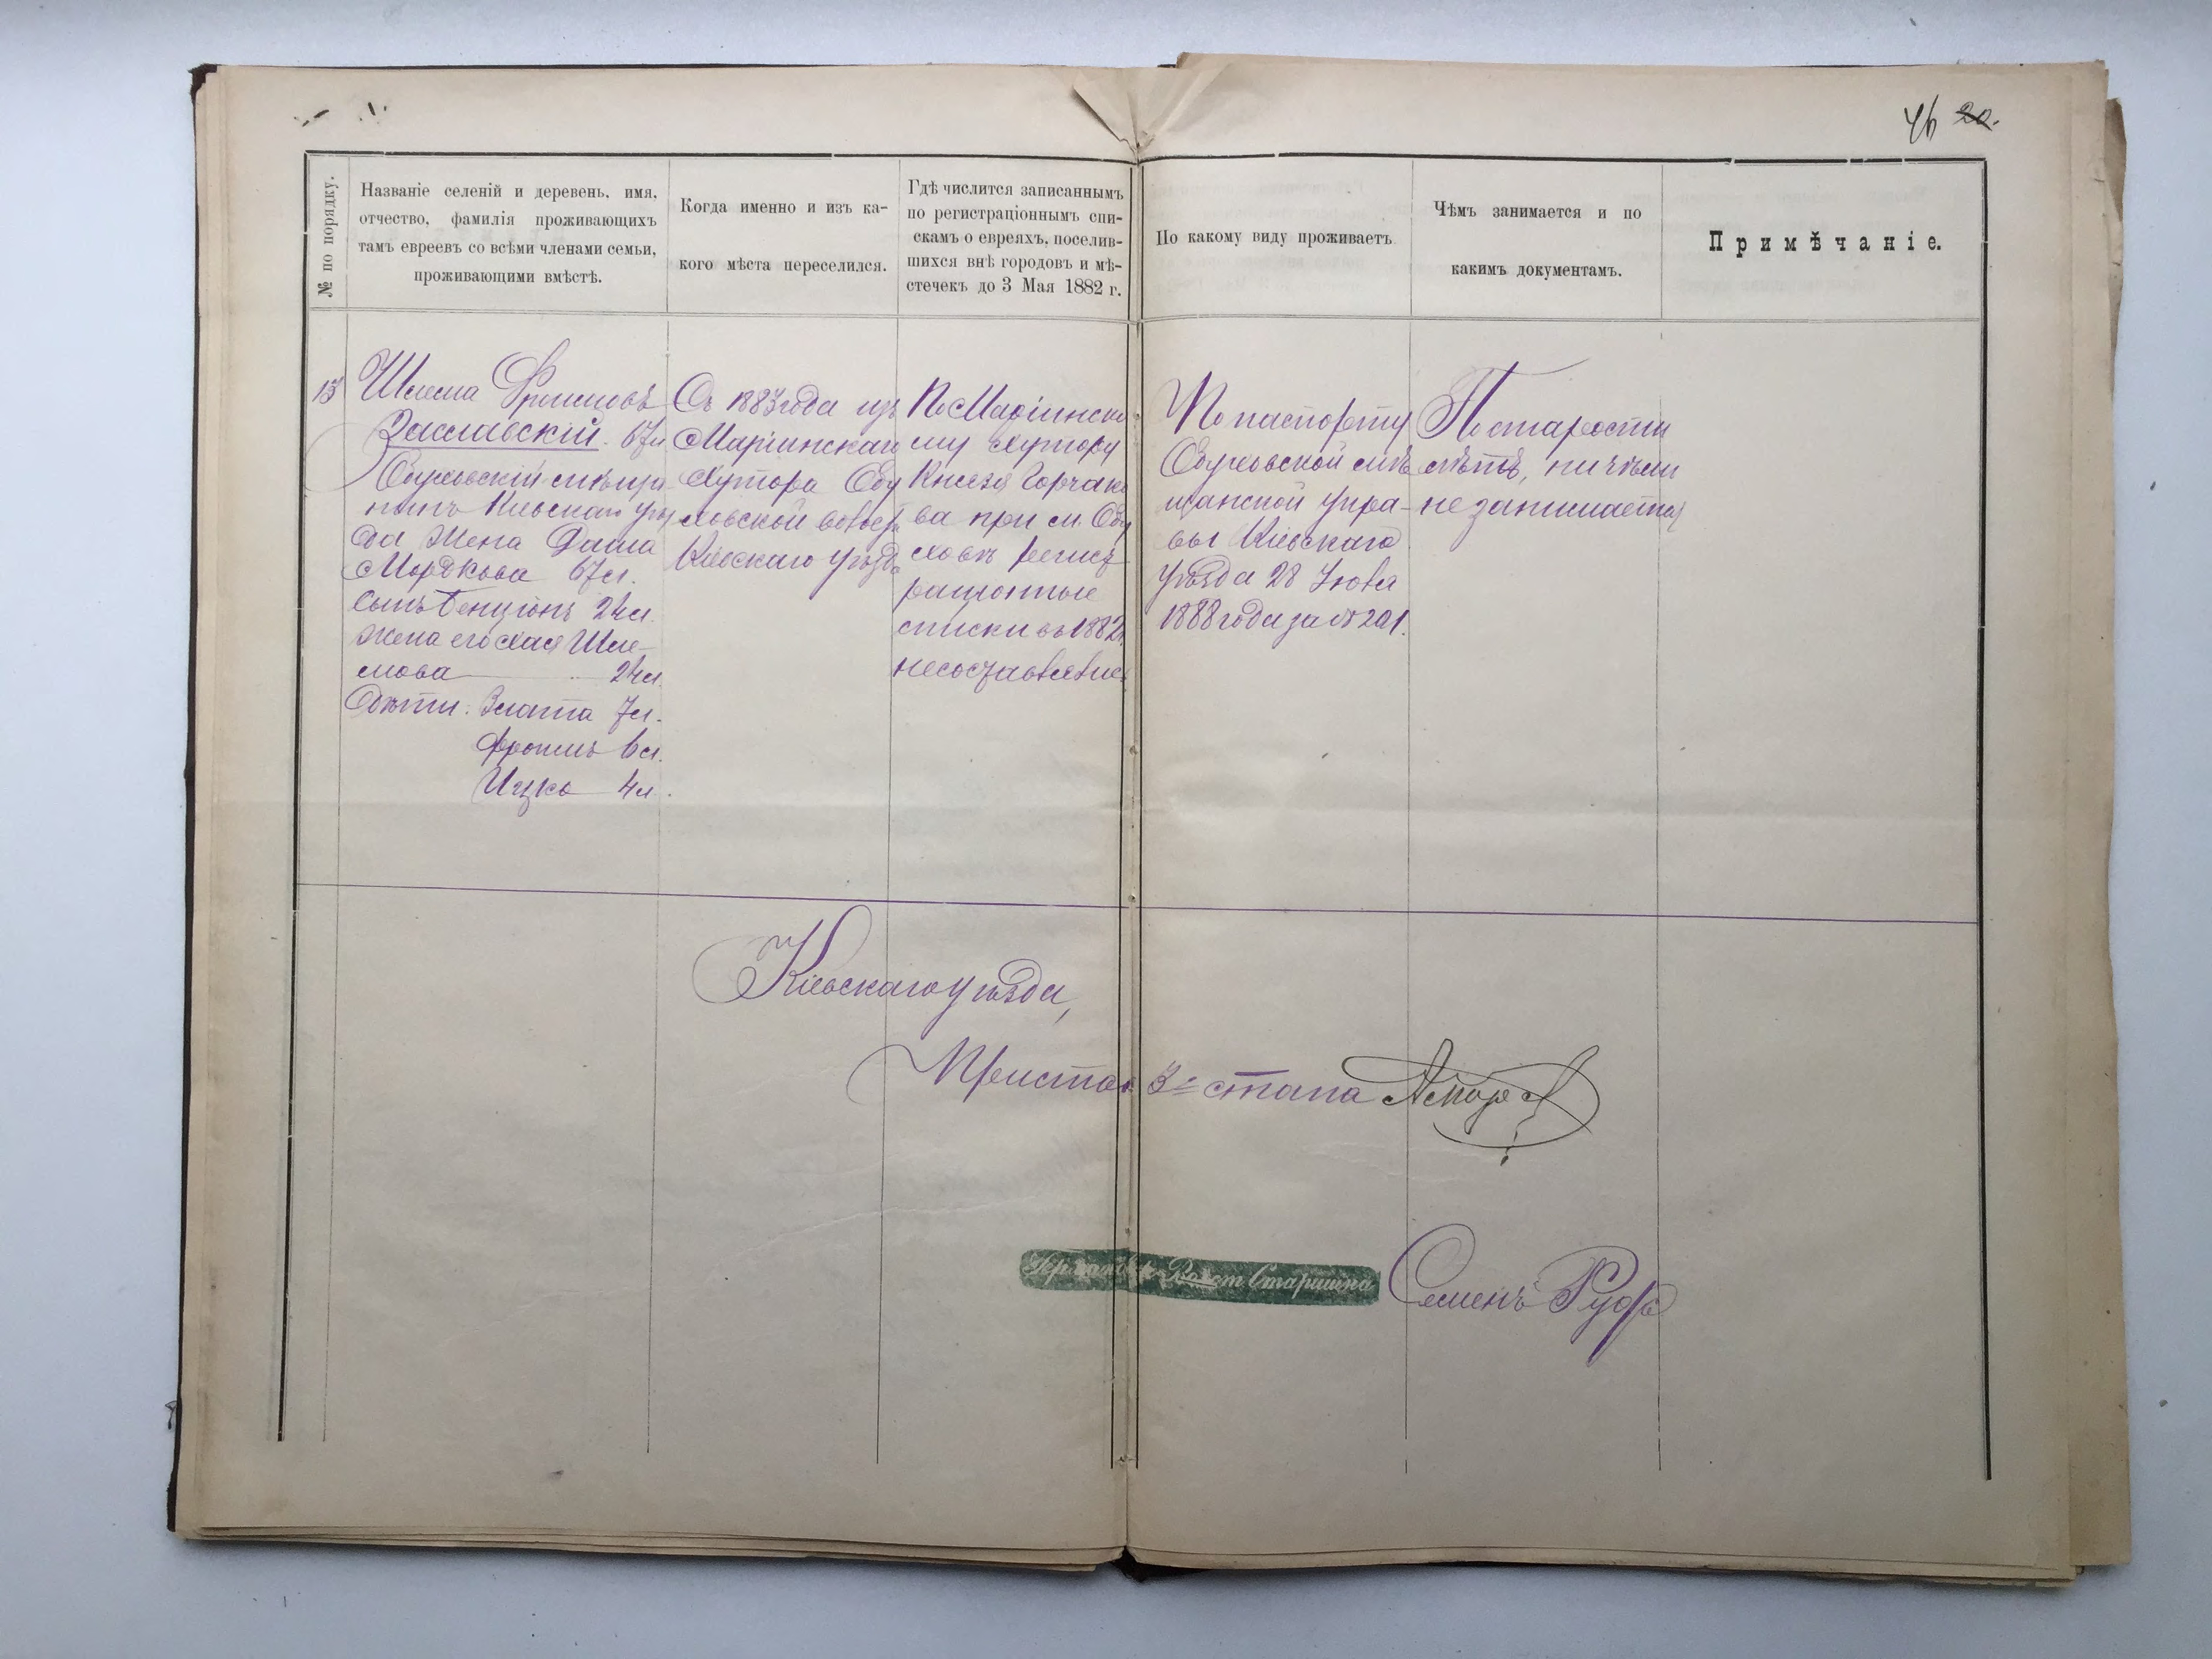 46 20.
№ по порядку.
Названіе селеній и деревень, имя,
отчество, фамилія проживающихъ
тамъ евреевъ со всѣми членами семьи,
проживающими вмѣстѣ.
Когда именно и изъ ка-
кого мѣста переселился.
Гдѣ числится записаннымъ
по регистраціоннымъ спи-
скамъ о евреяхъ, поселив-
шихся внѣ городовъ и мѣ-
стечекъ до 3 Мая 1882 г.
По какому виду проживаетъ
Чѣмъ занимается и по
какимъ документамъ.
Примѣчаніе.
13
Шлема Фроимовъ
Заславскій. 67 л
Обуховскій мѣща
нинъ Кіевскаго уѣз
да Жена Даша
Мордкова 67 л.
Сынъ Бенціонъ 24 л.
жена его Хася Шле-
мова 24 л.
Дѣти: Злата 7 л.
Фроимъ 6 л.
Ицко 4 л.
Съ 1883 года изъ
Маріинскаго
Хутора Обу
ховской волос.
Кіевскаго уѣзда
По Маріинско
му хутору
Князя Горчако
ва при м. Обу
ховѣ регист
раціонные
списки въ 1882 г.
несоставлялись
По паспорту
Обуховской мѣ
щанской упра-
вы Кіевскаго
уѣзда 28 Іюля
1888 года за № 201.
По старости
лѣтъ, ничѣмъ
не занимается
Кіевскаго уѣзда,
Приставъ 3го стана
Волост Старшина
Семенъ Рудь